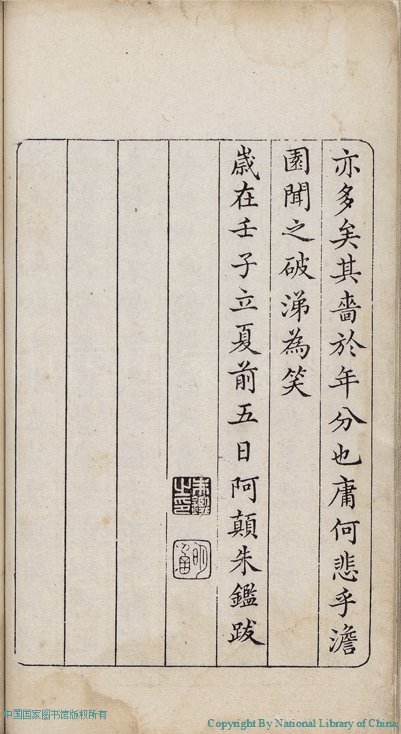 亦多矣其嗇於年分也庸何悲乎澹
園聞之破涕為笑
歲在壬子立夏前五日阿顛朱鑑跋
中国国家图书馆版权所有
Copyright By National Library of China